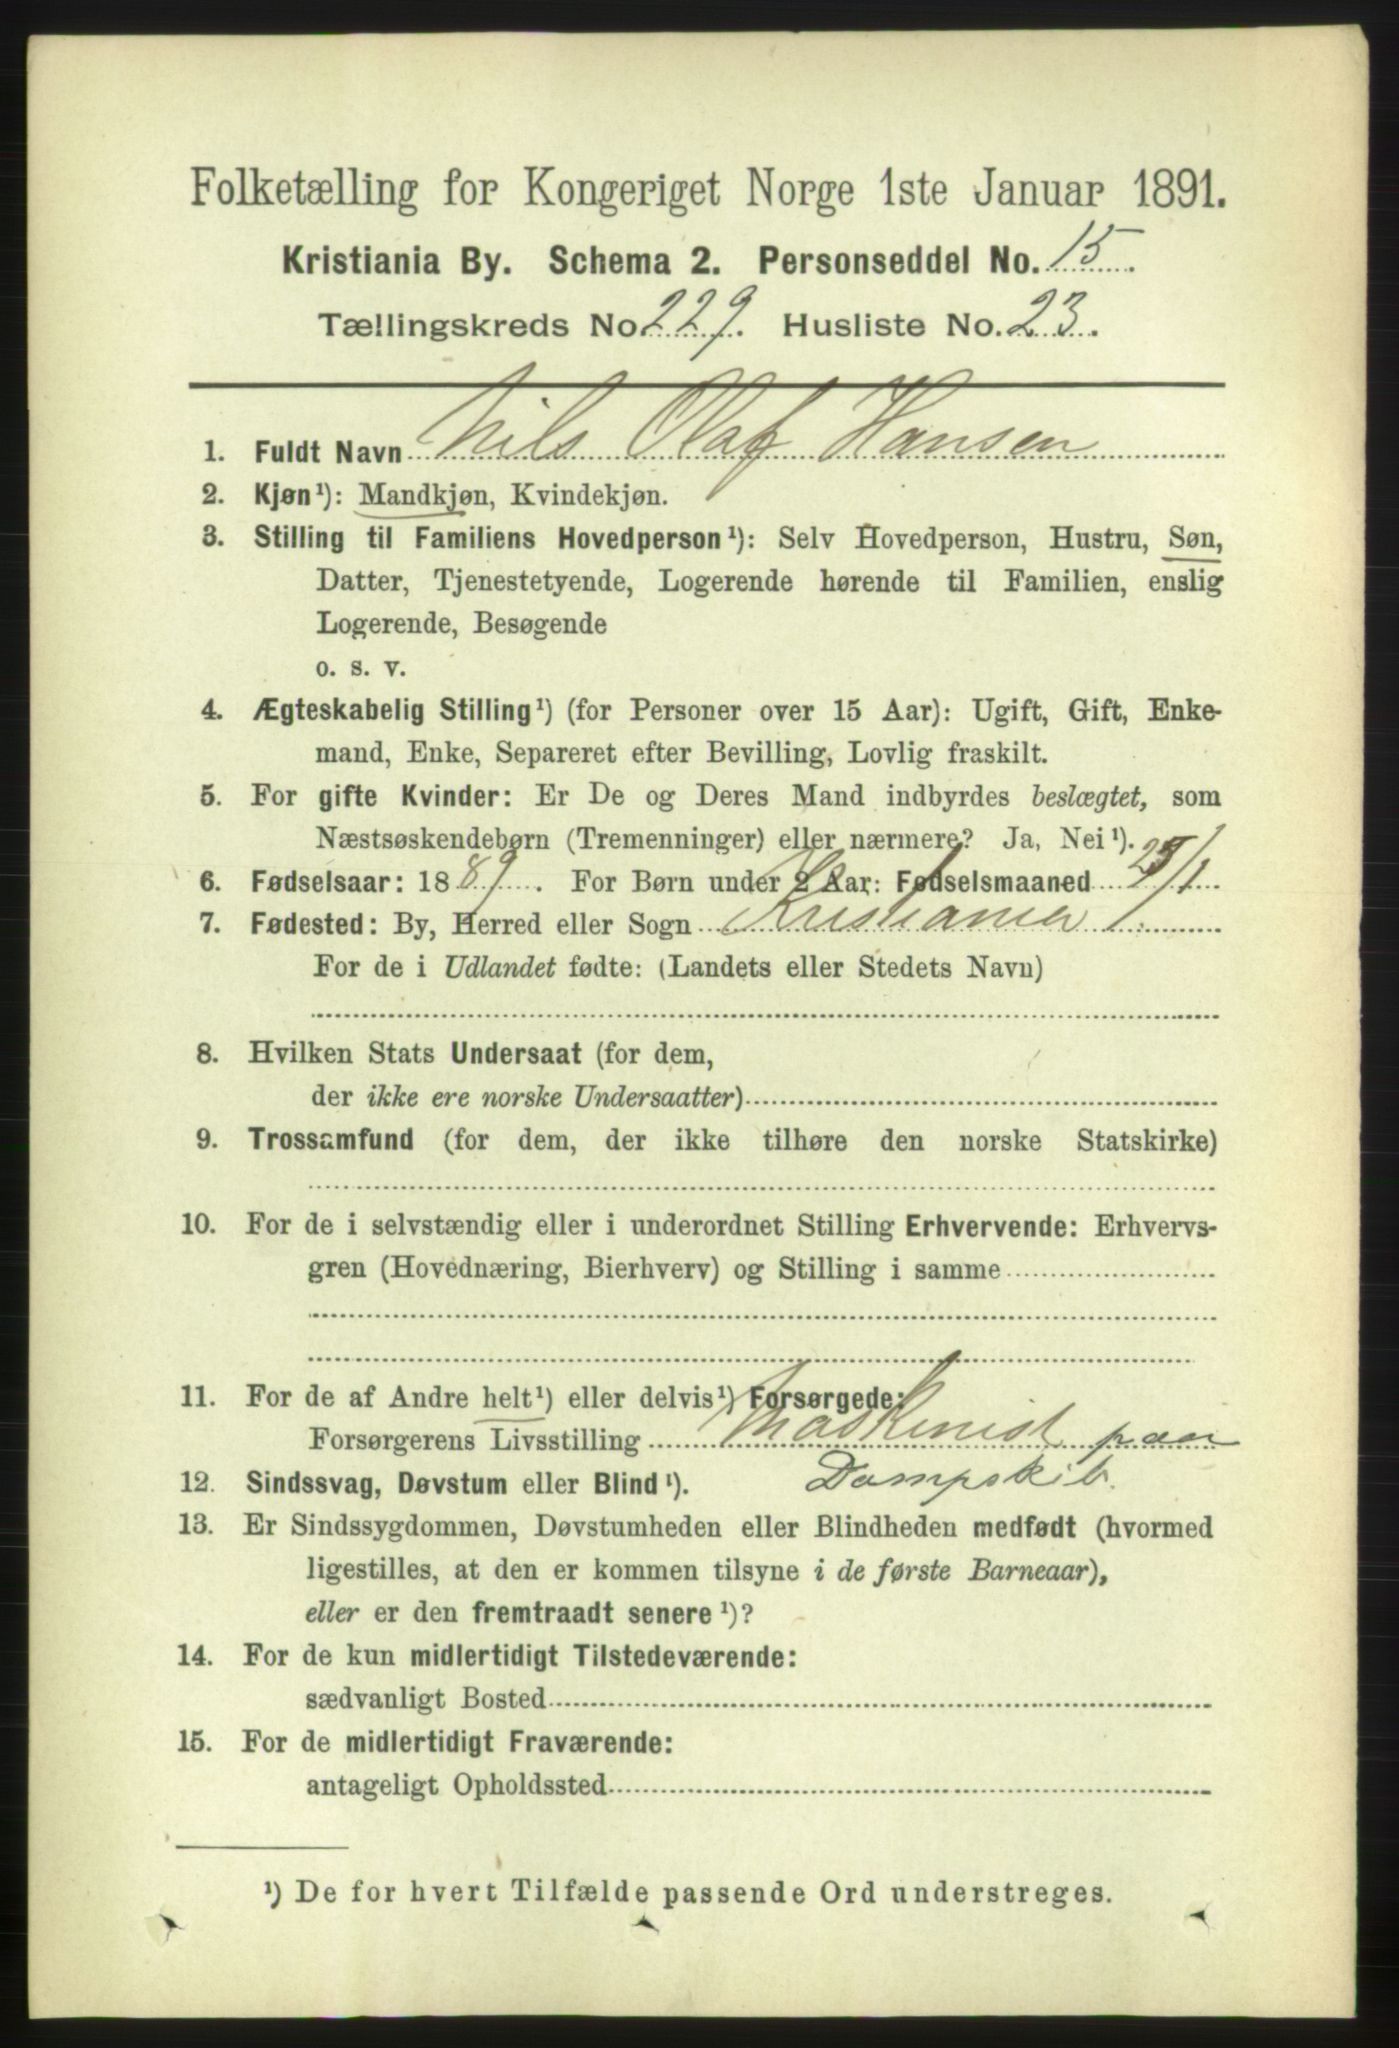 Folketælling for Kongeriget Norge 1ste Januar 1891.
Kristiania By. Schema 2. Personseddel No. 15.
Tællingskreds No. 229. Husliste No. 23.
1. Fuldt Navn Nils Olaf Hansen
2. Kjøn¹): Mandkjøn, Kvindekjøn.
3. Stilling til Familiens Hovedperson¹): Selv Hovedperson, Hustru, Søn,
Datter, Tjenestetyende, Logerende hørende til Familien, enslig
Logerende, Besøgende
o. s. v.
4. Ægteskabelig Stilling¹) (for Personer over 15 Aar): Ugift, Gift, Enke-
mand, Enke, Separeret efter Bevilling, Lovlig fraskilt.
5. For gifte Kvinder: Er De og Deres Mand indbyrdes beslægtet, som
Næstsøskendebørn (Tremenninger) eller nærmere? Ja, Nei¹).
6. Fødselsaar: 1889. For Børn under 2 Aar: Fødselsmaaned 25/1
7. Fødested: By, Herred eller Sogn Kristiania
For de i Udlandet fødte: (Landets eller Stedets Navn)
8. Hvilken Stats Undersaat (for dem,
der ikke ere norske Undersaatter)
9. Trossamfund (for dem, der ikke tilhøre den norske Statskirke)
10. For de i selvstændig eller i underordnet Stilling Erhvervende: Erhvervs-
gren (Hovednæring, Bierhverv) og Stilling i samme
11. For de af Andre helt¹) eller delvis¹) Forsørgede:
Forsørgerens Livsstilling Maskinist paa
Dampskib.
12. Sindssvag, Døvstum eller Blind¹).
13. Er Sindssygdommen, Døvstumheden eller Blindheden medfødt (hvormed
ligestilles, at den er kommen tilsyne i de første Barneaar),
eller er den fremtraadt senere¹)?
14. For de kun midlertidigt Tilstedeværende:
sædvanligt Bosted
15. For de midlertidigt Fraværende:
antageligt Opholdssted
¹) De for hvert Tilfælde passende Ord understreges.